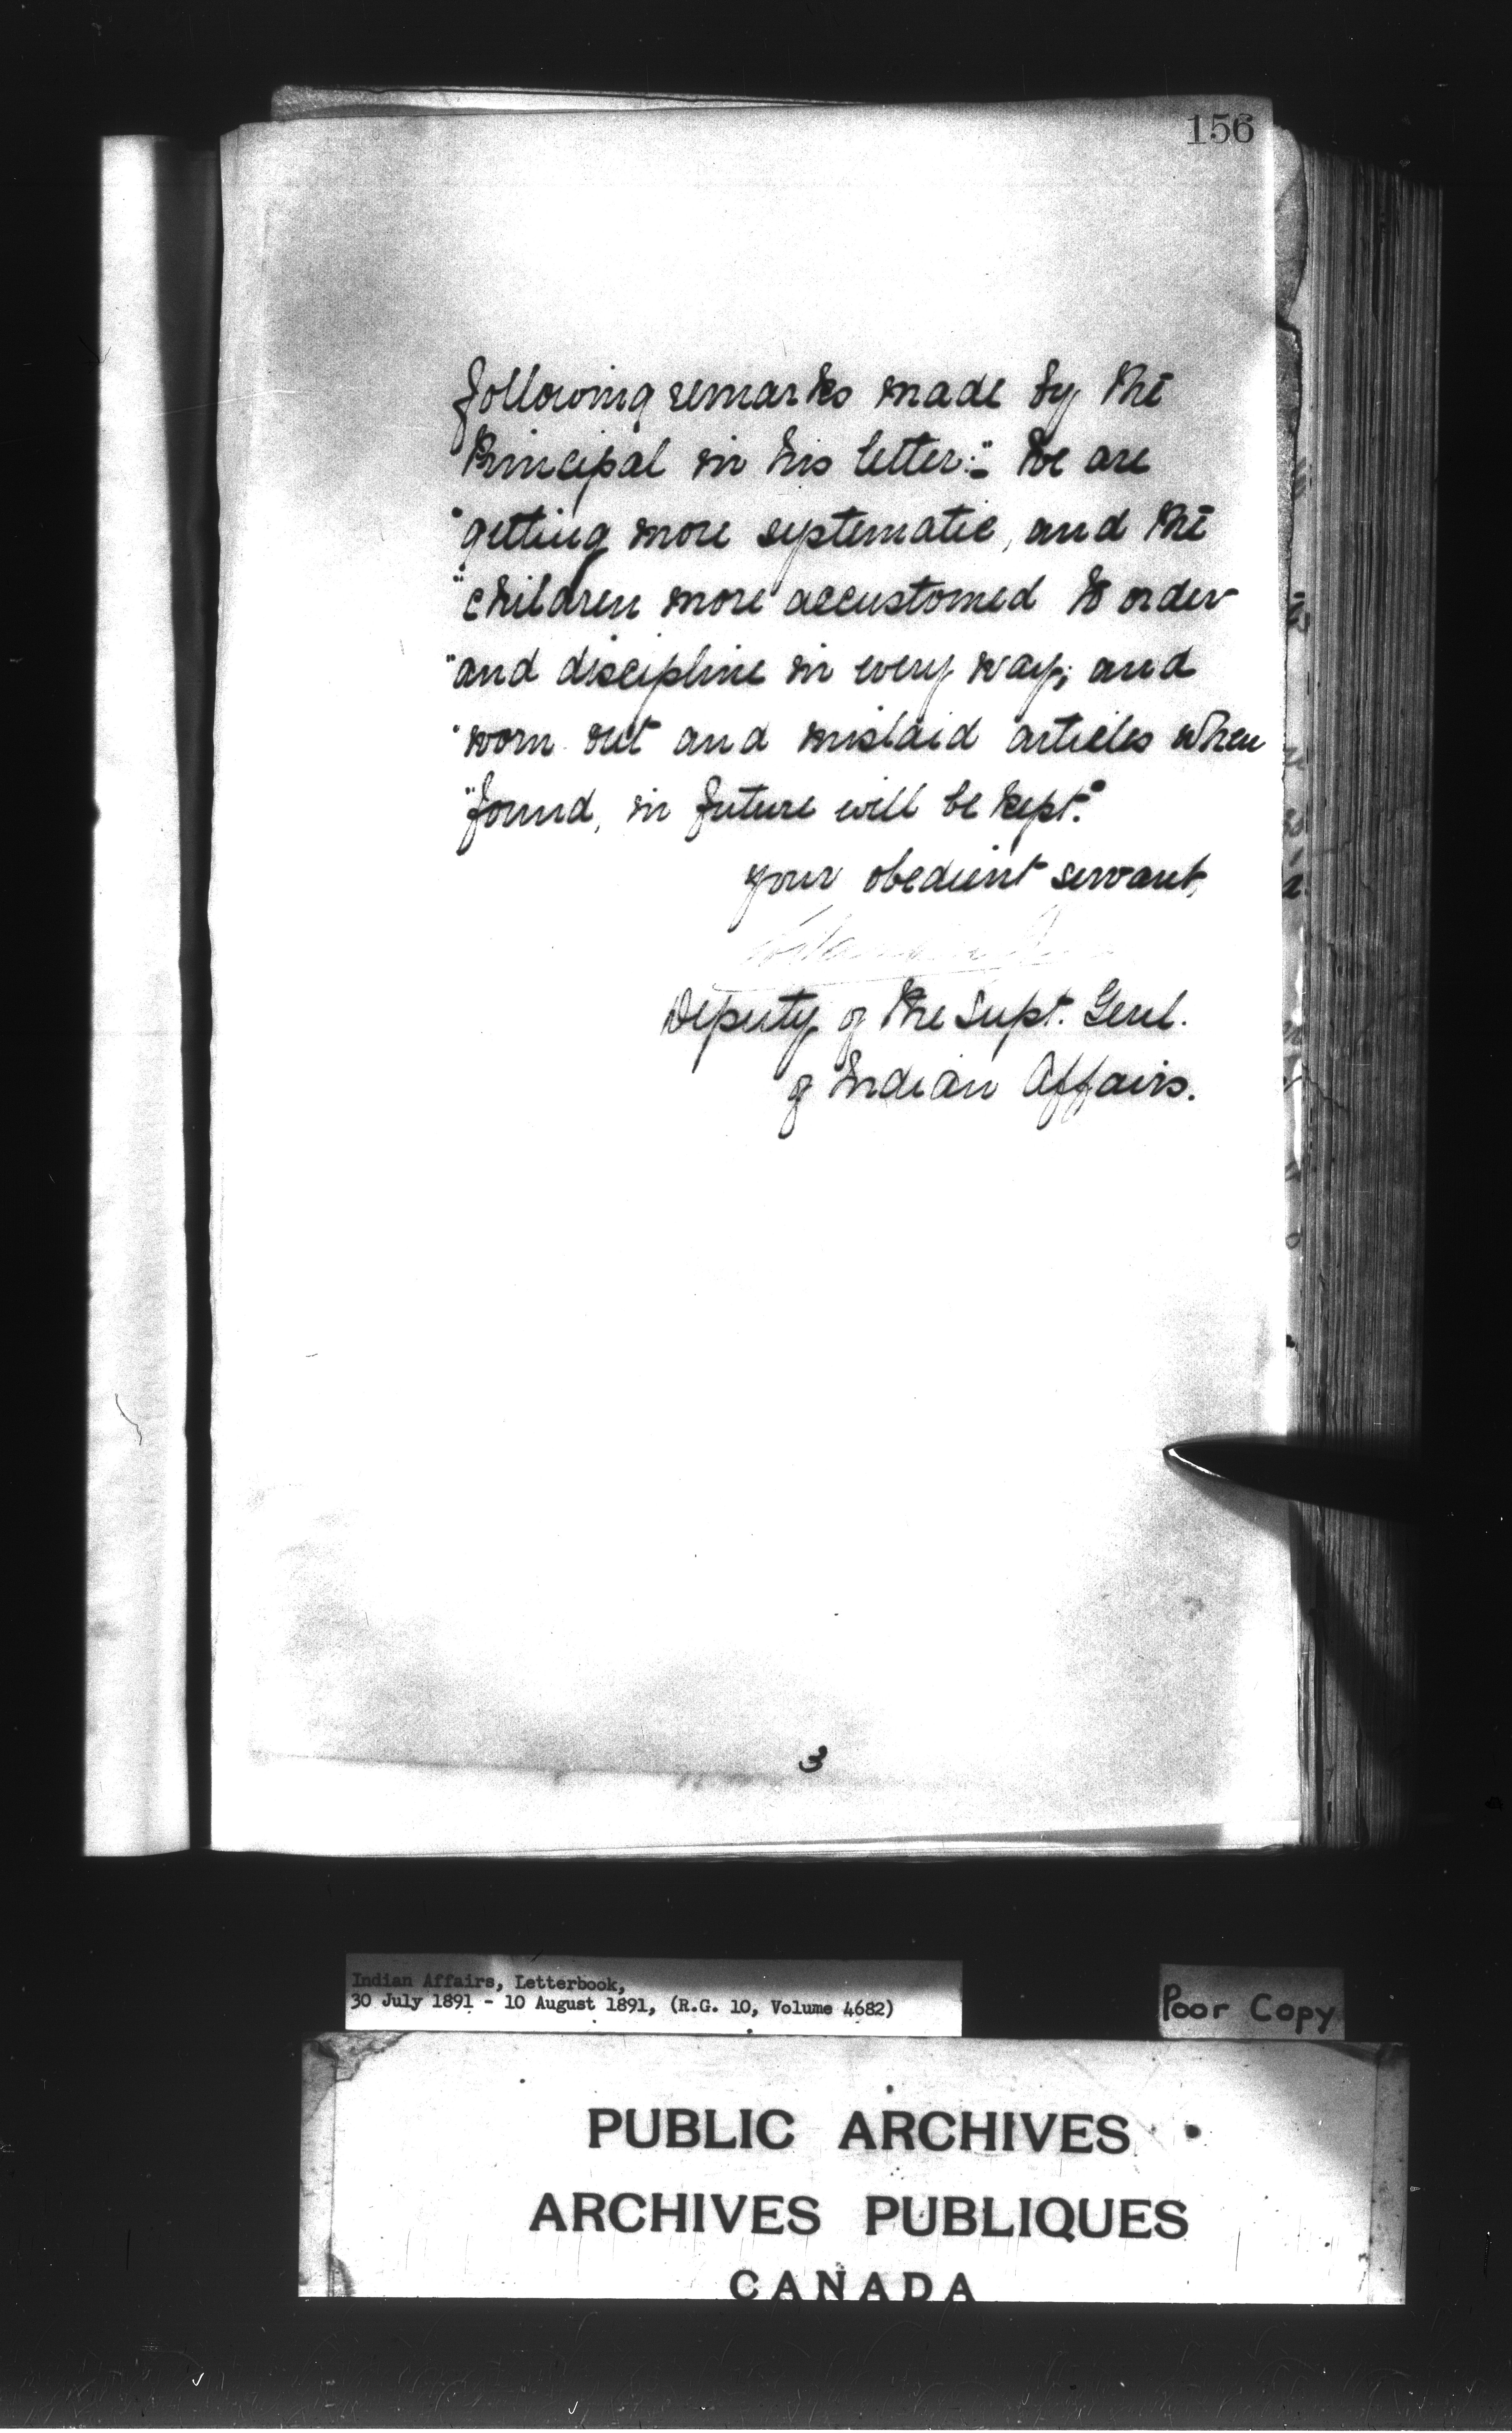 156
following remarks made by the
Principal in his letter:- "We are
"getting more systematic, and the
"children more accustomed to order
"and discipline in every way; and
"worn out and mislaid articles when
"found, in future will be kept."
your obedient servant,
Deputy of the Supt. Genl.
of Indian Affairs.
3
Indian Affairs, Letterbook,
30 July 1891 - 10 August 1891, (R.G. 10, Volume 4682)
Poor Copy
PUBLIC ARCHIVES
ARCHIVES PUBLIQUES
CANADA